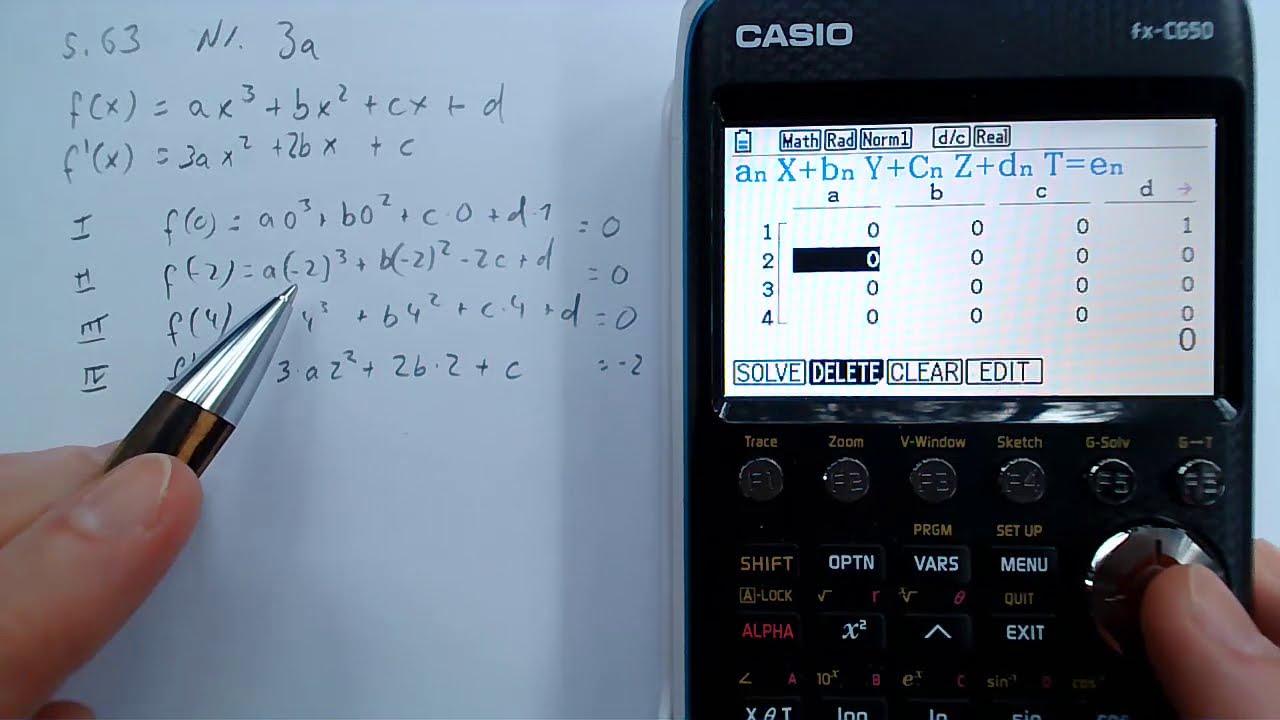 S. 63 Nr. 3a
f(x) = ax³ + bx² + cx + d
f'(x) = 3ax² + 2bx + c
I f(0) = a0³ + b0² + c·0 + d·1 = 0
II f(-2) = a(-2)³ + b(-2)² - 2c + d = 0
III f(4) 4³ + b4² + c·4 + d = 0
IV 3·a2² + 2b·2 + c = -2
CASIO fx-CG50
Math Rad Norm1 d/c Real
an X+bn Y+Cn Z+dn T=en
a b c d →
1 0 0 0 1
2 0 0 0 0
3 0 0 0 0
4 0 0 0 0
0
SOLVE DELETE CLEAR EDIT
Trace Zoom V-Window Sketch G-Solv G↔T
F1 F2 F3 F4 F5 F6
PRGM SET UP
SHIFT OPTN VARS MENU
A-LOCK √ r ˣ√ θ QUIT
ALPHA x² ^ EXIT
∠ A 10ˣ B eˣ C sin⁻¹ D cos⁻¹
X,θ,T log ln sin cos